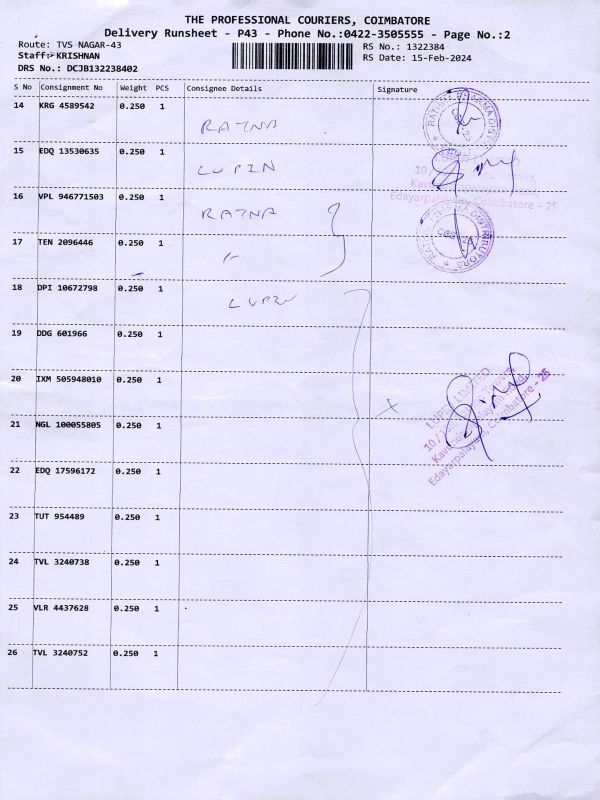 THE PROFESSIONAL COURIERS, COIMBATORE
Delivery Runsheet - P43 - Phone No.:0422-3505555 - Page No.:2
Route: TVS NAGAR-43 RS No.: 1322384
Staff: KRISHNAN RS Date: 15-Feb-2024
DRS No.: DCJB132238402
S No Consignment No Weight PCS Consignee Details Signature
14 KRG 4589542 0.250 1
RATNA
15 EDQ 13530635 0.250 1
LUPIN
16 VPL 946771503 0.250 1
RATNA
Edayarpalayam, Coimbatore - 25
17 TEN 2096446 0.250 1
18 DPI 10672798 0.250 1
LUPIN
19 DDG 601966 0.250 1
20 IXM 505948010 0.250 1
21 NGL 100055805 0.250 1
LUPIN LIMITED
Edayarpalayam, Coimbatore - 25
22 EDQ 17596172 0.250 1
23 TUT 954489 0.250 1
24 TVL 3240738 0.250 1
25 VLR 4437628 0.250 1
26 TVL 3240752 0.250 1